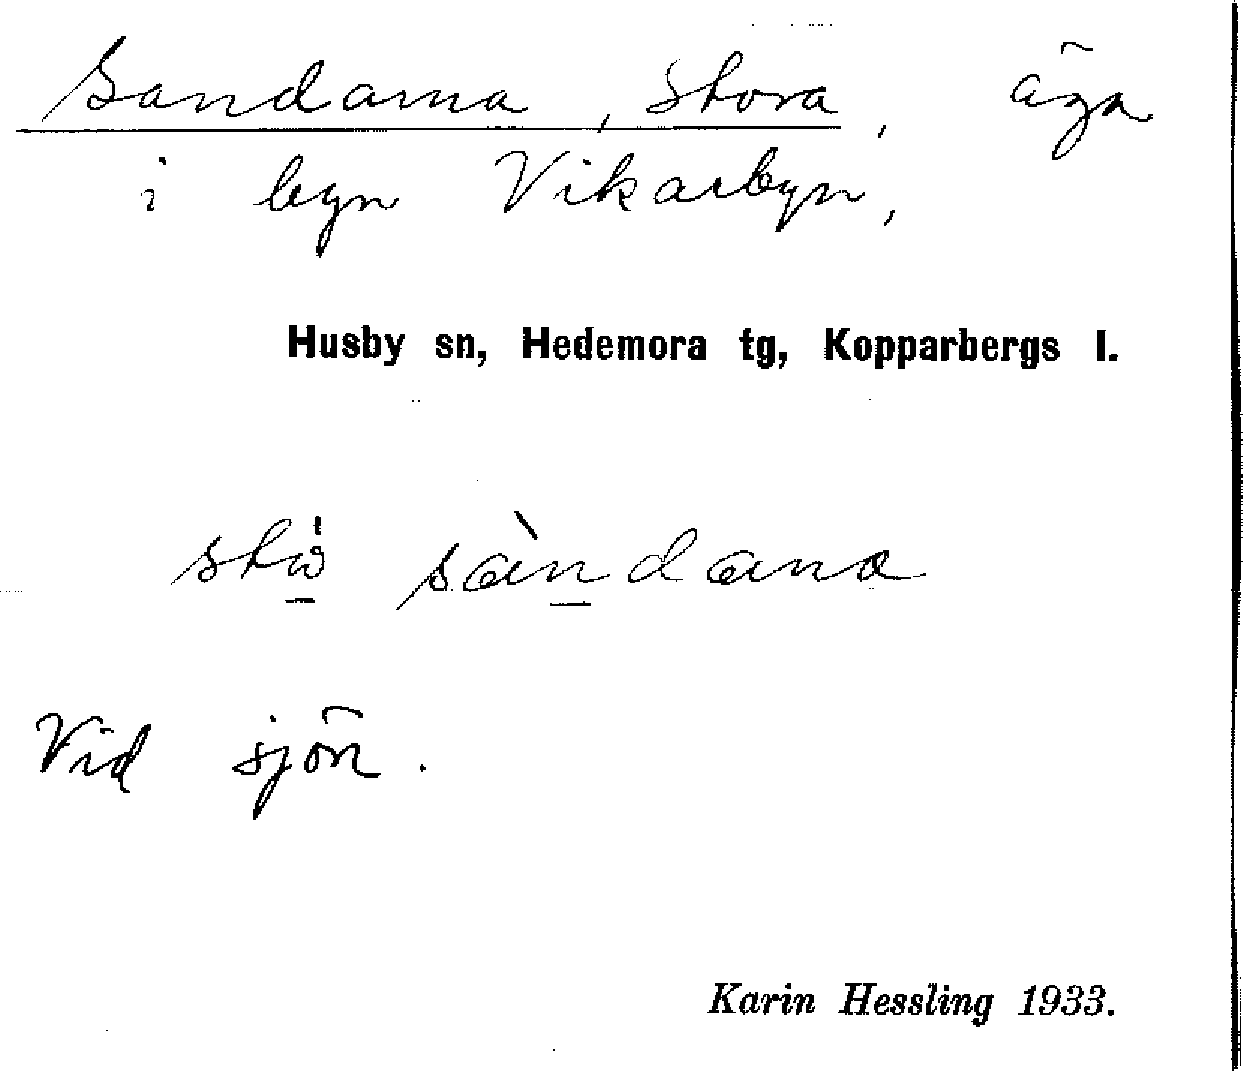 Sandarna, Stora, äga
i byn Vikarbyn,
Husby sn, Hedemora tg, Kopparbergs l.
stὼ sàndana
Vid sjön.
Karin Hessling 1933.